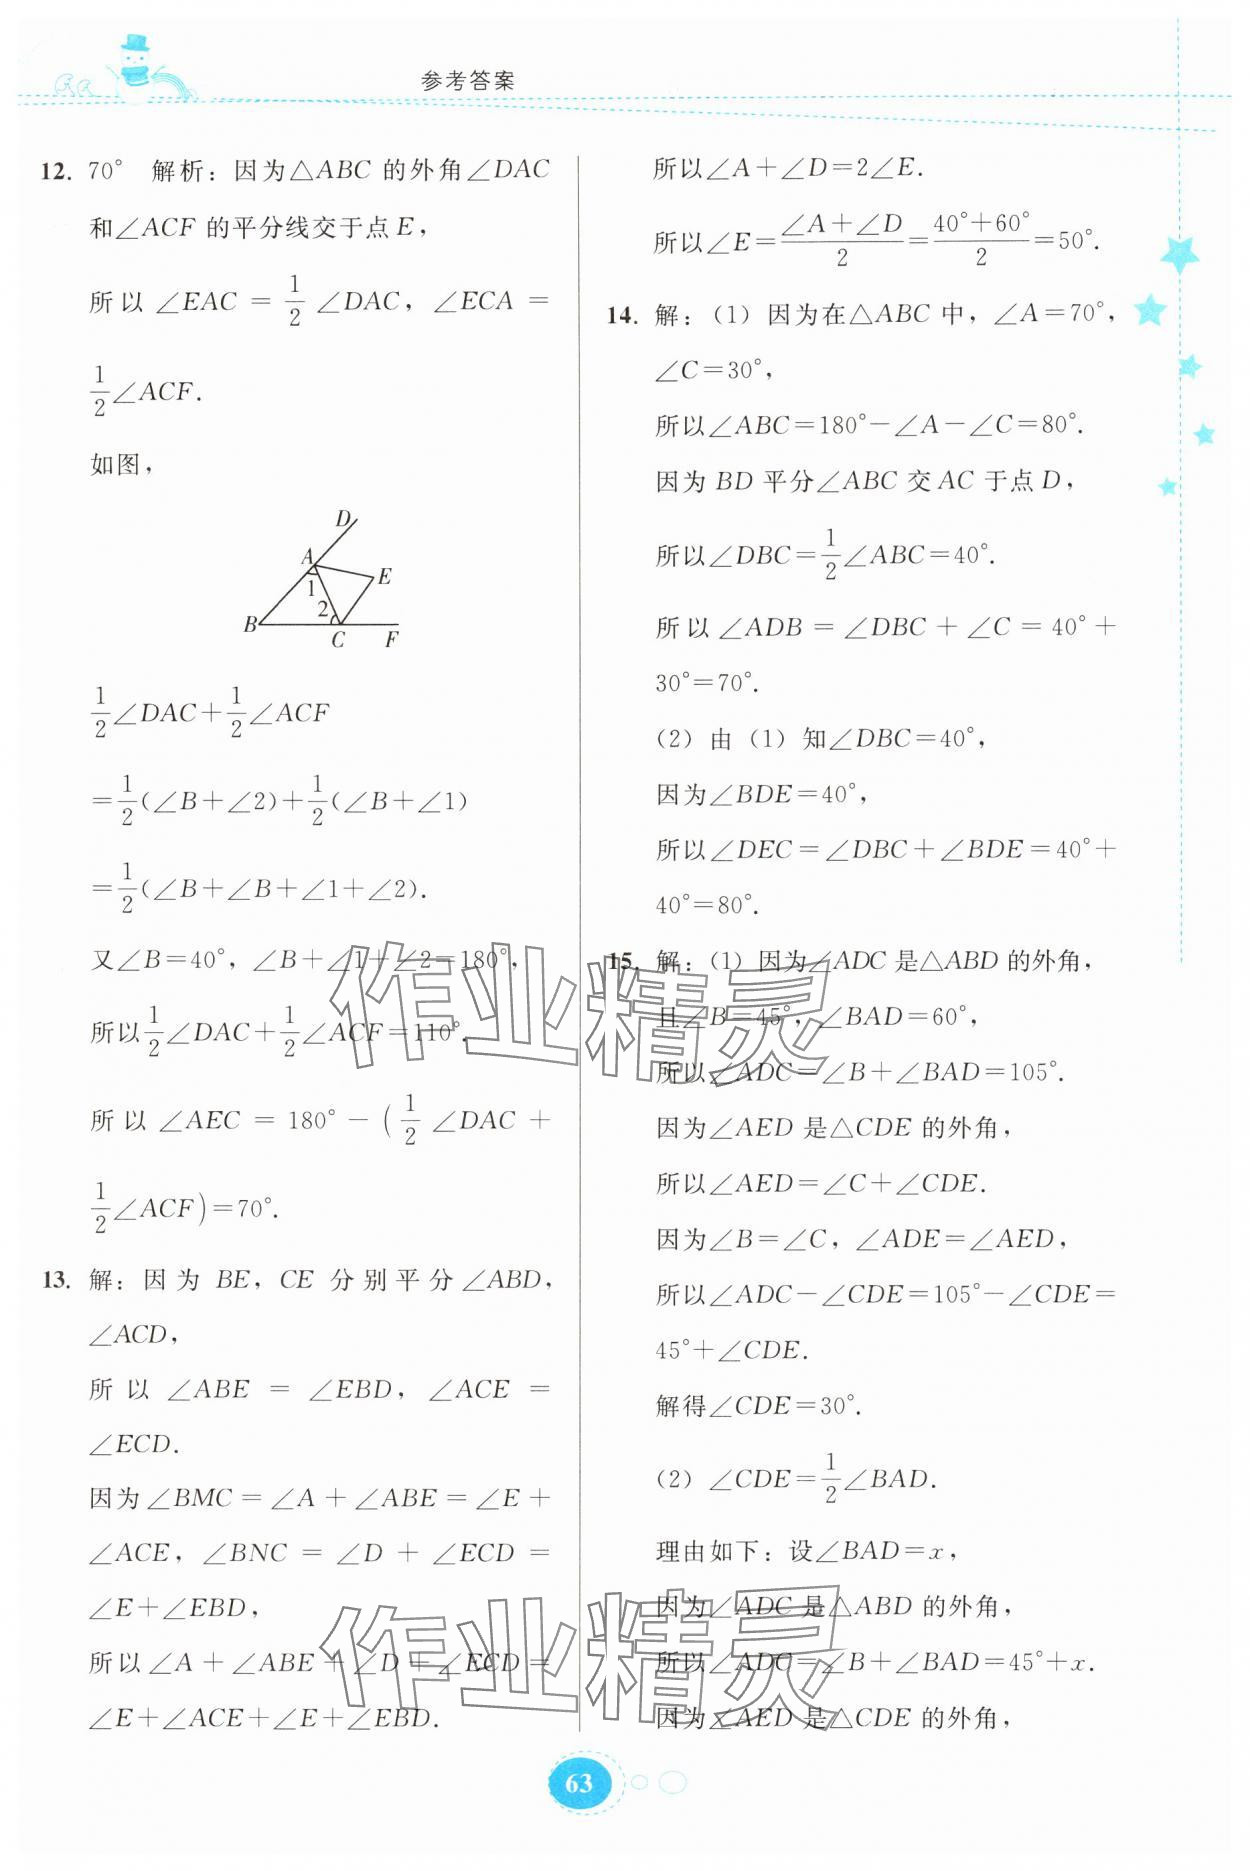 参考答案
12. 70° 解析：因为△ABC 的外角∠DAC
和∠ACF 的平分线交于点 E，
所以 ∠EAC = 1/2 ∠DAC，∠ECA =
1/2∠ACF.
如图，
D
A
1
E
2
B
C
F
1/2∠DAC+1/2∠ACF
=1/2(∠B+∠2)+1/2(∠B+∠1)
=1/2(∠B+∠B+∠1+∠2).
又∠B=40°，∠B+∠1+∠2=180°，
所以1/2∠DAC+1/2∠ACF=110°.
所以 ∠AEC = 180° - (1/2 ∠DAC +
1/2∠ACF)=70°.
13. 解：因为 BE，CE 分别平分∠ABD，
∠ACD，
所以 ∠ABE = ∠EBD，∠ACE =
∠ECD.
因为∠BMC=∠A+∠ABE=∠E+
∠ACE，∠BNC = ∠D + ∠ECD =
∠E+∠EBD，
所以∠A+∠ABE+∠D+∠ECD=
∠E+∠ACE+∠E+∠EBD.
所以∠A+∠D=2∠E.
所以∠E=(∠A+∠D)/2=(40°+60°)/2=50°.
14. 解：（1）因为在△ABC 中，∠A=70°，
∠C=30°，
所以∠ABC=180°-∠A-∠C=80°.
因为 BD 平分∠ABC 交 AC 于点 D，
所以∠DBC=1/2∠ABC=40°.
所以 ∠ADB = ∠DBC + ∠C = 40° +
30°=70°.
（2）由（1）知∠DBC=40°，
因为∠BDE=40°，
所以∠DEC=∠DBC+∠BDE=40°+
40°=80°.
15. 解：（1）因为∠ADC 是△ABD 的外角，
且∠B=45°，∠BAD=60°，
所以∠ADC=∠B+∠BAD=105°.
因为∠AED 是△CDE 的外角，
所以∠AED=∠C+∠CDE.
因为∠B=∠C，∠ADE=∠AED，
所以∠ADC-∠CDE=105°-∠CDE=
45°+∠CDE.
解得∠CDE=30°.
（2）∠CDE=1/2∠BAD.
理由如下：设∠BAD=x，
因为∠ADC 是△ABD 的外角，
所以∠ADC=∠B+∠BAD=45°+x.
因为∠AED 是△CDE 的外角，
作业精灵
作业精灵
63